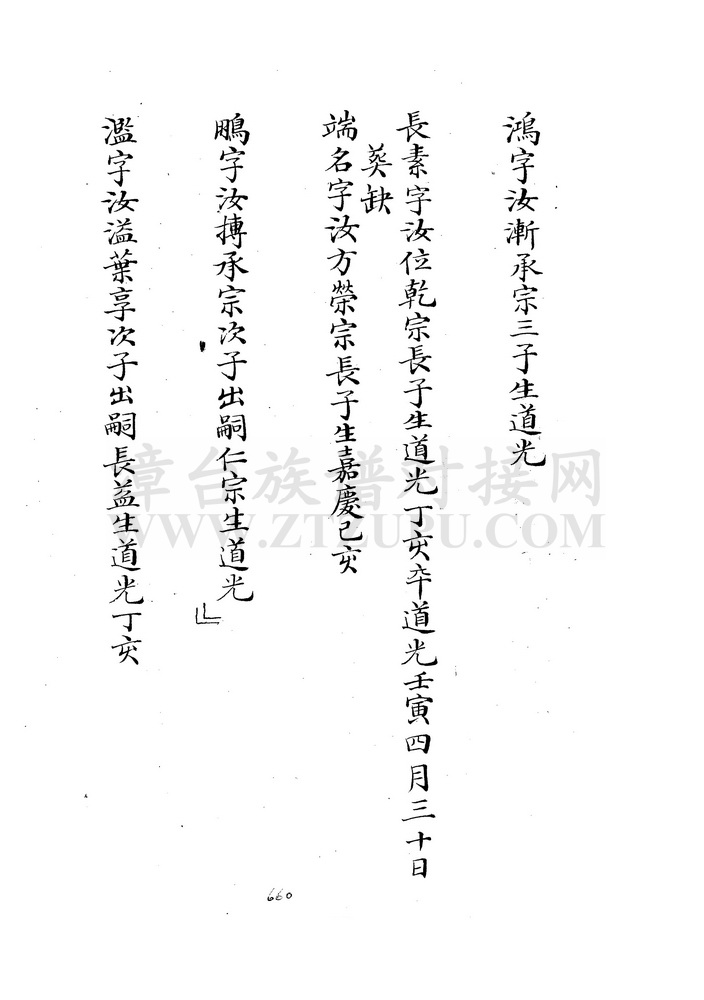 鴻字汝漸承宗三子生道光
長素字汝位乾宗長子生道光丁亥卒道光壬寅四月三十日
葬缺
端名字汝方榮宗長子生嘉慶己亥
鵬字汝摶承宗次子出嗣仁宗生道光
濫字汝溢葉享次子出嗣長益生道光丁亥
660
章台族谱对接网
WWW.ZTZUPU.COM